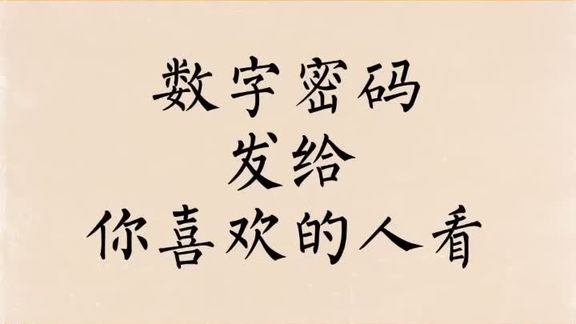 数字密码
发给
你喜欢的人看